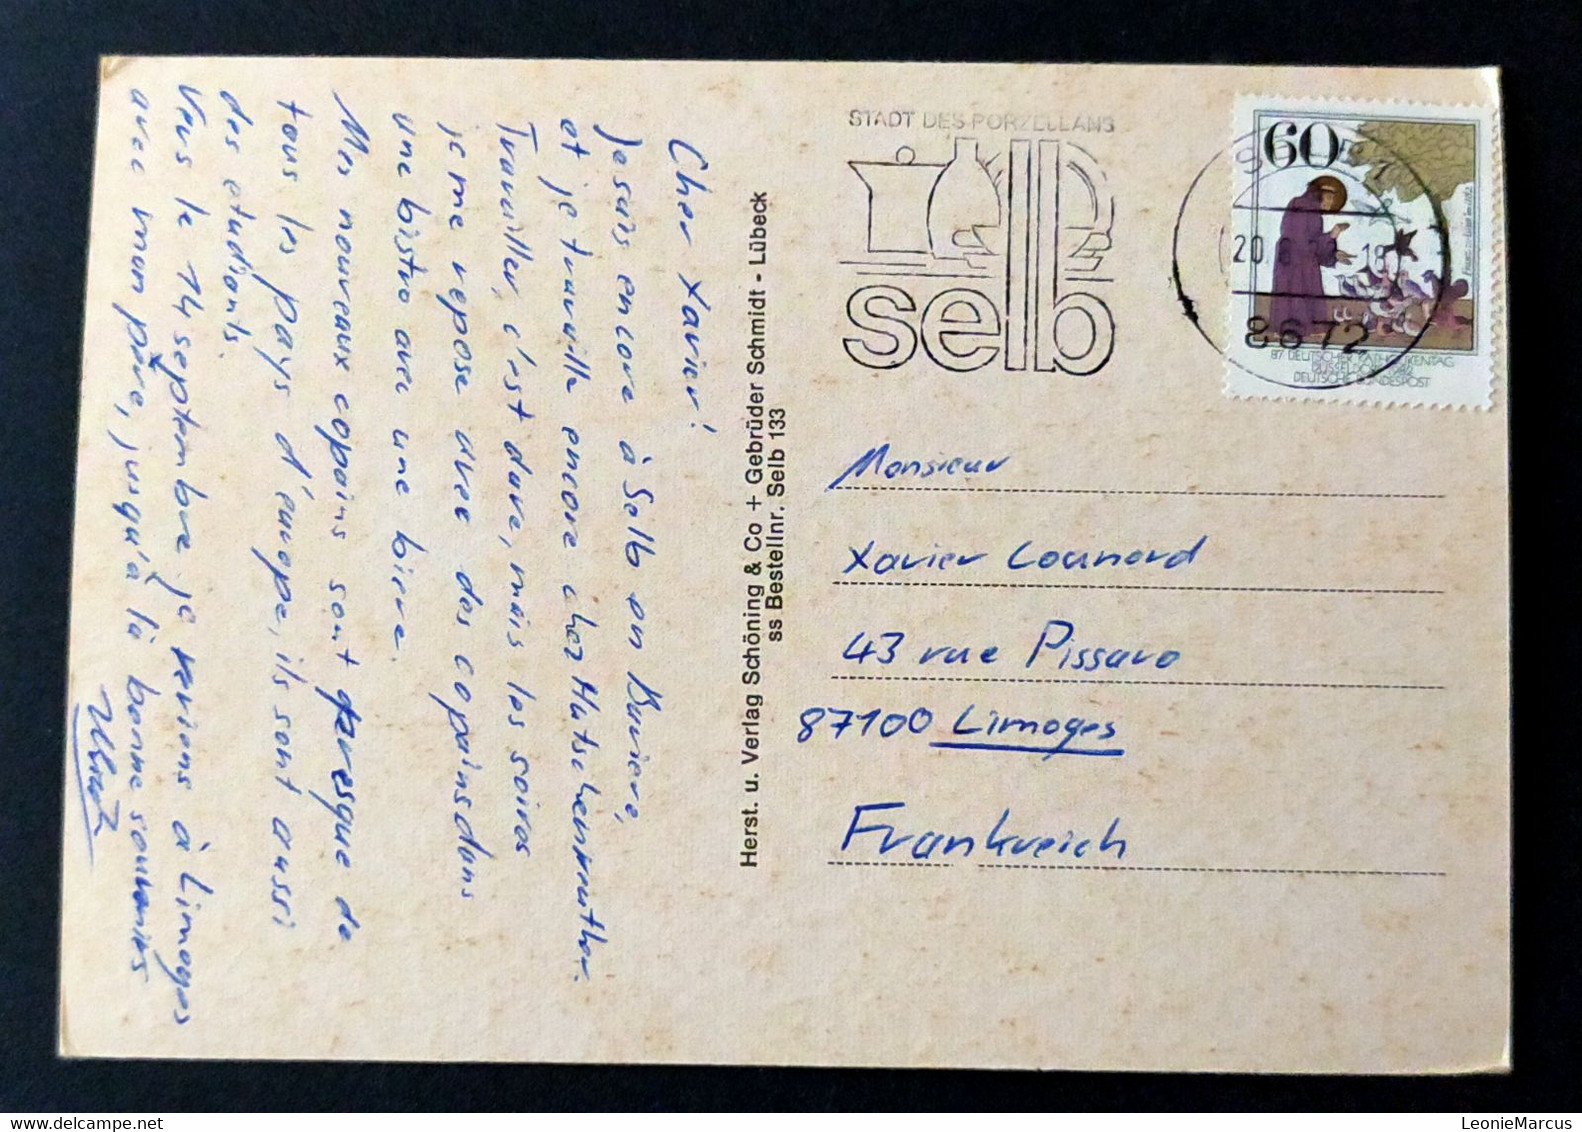 Cher Xavier!
Je suis encore à Selb en Baviere,
et je travaille encore chez Hutschenreuther.
Travailler, c'est dure, mais les soires
je me repose avec des copains dans
une bistro avec une biere.
Mes nouveaux copains sont presque de
tous les pays d'europe, ils sont aussi
des etudiants.
Vers le 14 septembre je reviens à Limoges
avec mon père, jusqu'à là bonne souvenirs
Herst. u. Verlag Schöning & Co + Gebrüder Schmidt - Lübeck
ss Bestellnr. Selb 133
STADT DES PORZELLANS
selb
60
20.8. 18
8672
87. DEUTSCHER KATHOLIKENTAG
DÜSSELDORF 1982
DEUTSCHE BUNDESPOST
Monsieur
Xavier
43 rue Pissaro
87100 Limoges
Frankreich
LeonieMarcus